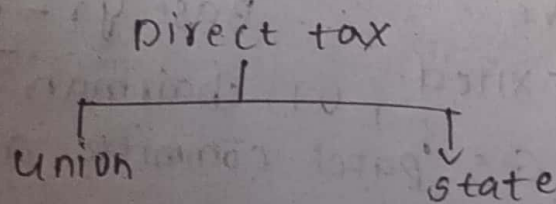 Direct tax
union
state